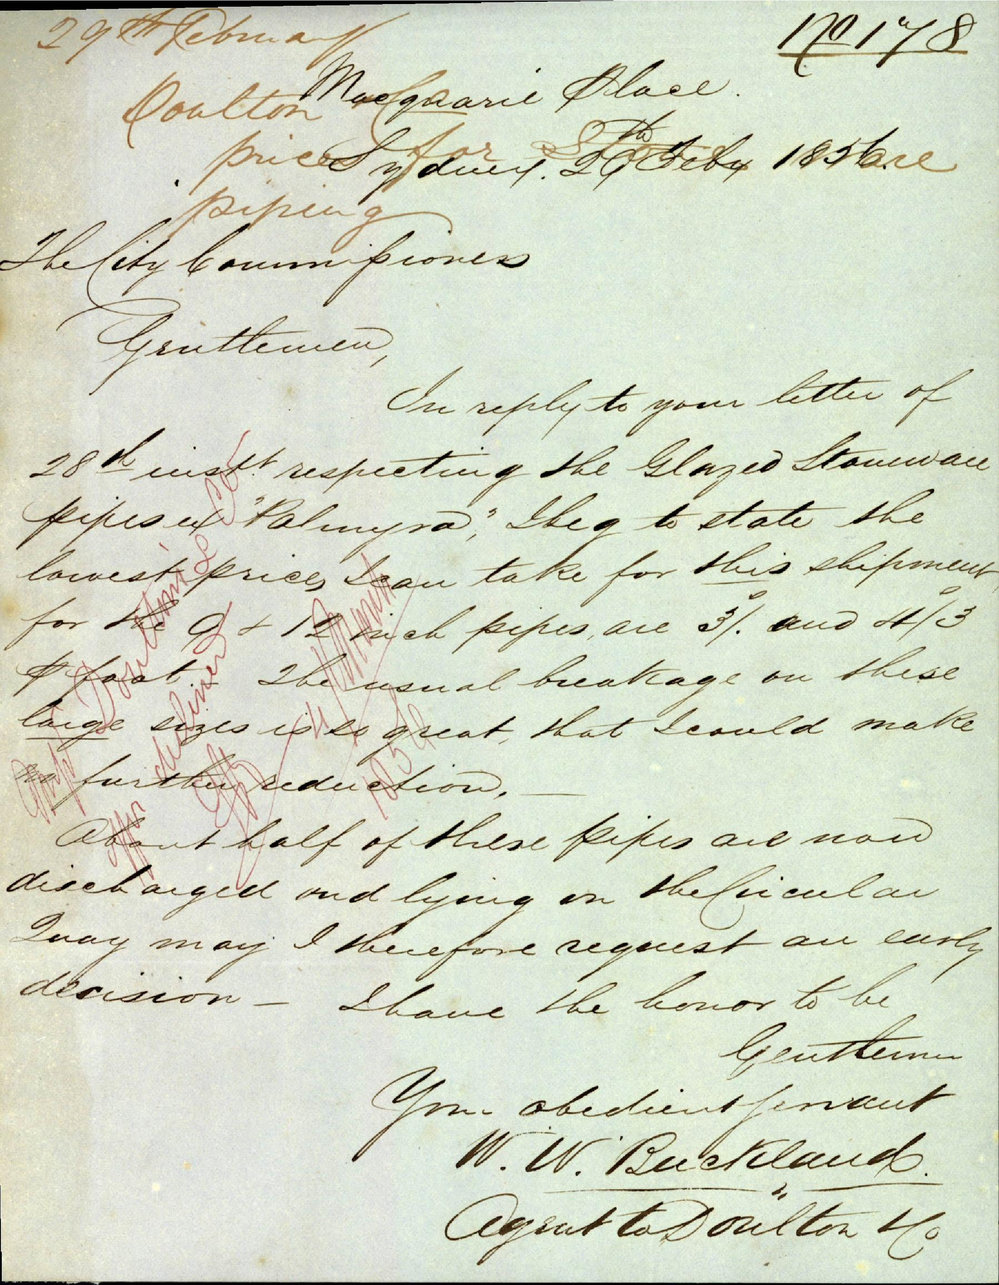 29th February
No 178
Doulton & Co
Macquarie Place.
prices for Stoneware
Sydney. 29th Feby 1856
piping
The City Commissioners
Gentlemen,
In reply to your letter of
28th instt respecting the Glazed Stoneware
pipes ex "Palmyra", I beg to state the
lowest prices I can take for this shipment
for the 9 & 12 inch pipes, are 3/. and 4/3
P foot. The usual breakage on these
large sizes is so great, that I could make
no further reduction. —
About half of these pipes are now
discharged and lying on the Circular
Quay may I therefore request an early
decision — I have the honor to be
Gentlemen
Your obedient servant
W. W. Buckland.
Agent to Doulton & Co
Doulton & Co
offer declined
11 March
1856